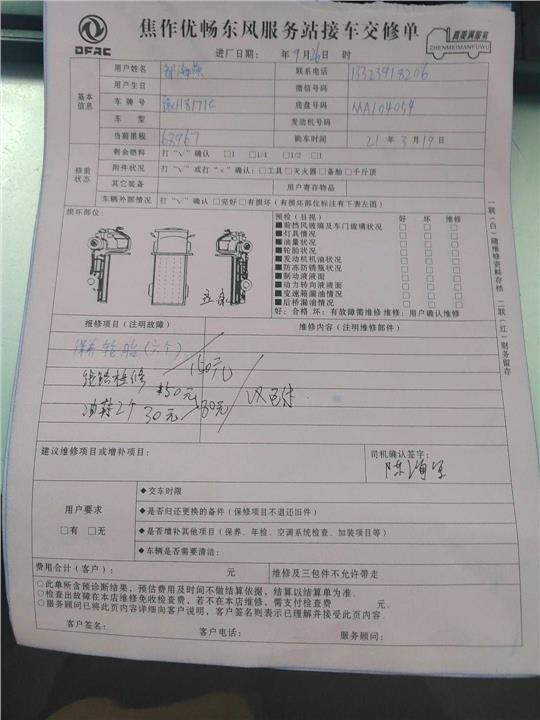 DFAC
焦作优畅东风服务站接车交修单
真美满服务
ZHENMEIMANFUWU
进厂日期: 年 9 月 26 日 时
基本信息
用户姓名 联系电话 13323918206
用户生日 微信号码
车牌号 底盘号码 MA104054
车型 发动机号码
当前里程 68967 购车时间 21 年 3 月 19 日
修前状态
剩余燃料 打“√”确认 □1 □1/4 □1/2 □1
附件状况 打“√”或打“×”确认: □工具 □灭火器 □备胎 □千斤顶
其它装备 用户寄存物品
车辆外部情况 打“√”确认 □完好 □有损坏(有损坏部位标注有下表左图)
损坏部位:
预检(目视) 好 坏 维修
■前挡风玻璃及车门玻璃状况 □ □ □
■灯具情况 □ □ □
■油量状况 □ □ □
■轮胎状况 □ □ □
■发动机机油状况 □ □ □
■防冻防锈瓶状况 □ □ □
■制动液液面 □ □ □
■动力转向液液面 □ □ □
■变速箱漏油情况 □ □ □
■后桥漏油情况 □ □ □
好: 合格 坏: 有故障需维修 维修: 用户确认维修
一联(白)随维修资料存档 二联(红)财务留存
报修项目(注明故障) 维修内容(注明维修部件)
保养轮胎(六个) 150元
线路检修 150元
油鞋2个 30元
建议维修项目或增补项目: 司机确认签字:
用户要求
□有 □无
◆交车时限
◆是否归还更换的备件(保修项目不退还旧件)
◆是否增补其他项目(保养、年检、空调系统检查、加装项目等)
◆车辆是否需要清洁:
费用合计(客户): 元 维修及三包件不允许带走
○此单所含预诊断结果,预估费用及时间不做结算依据,结算以结算单为准。
○检查出故障在本店维修免收检查费,若不在本店维修,需支付检查费 元。
○服务顾问已将此页内容详细向客户说明,客户签名则表示已理解并接受此页内容.
客户签名: 客户电话: 服务顾问: